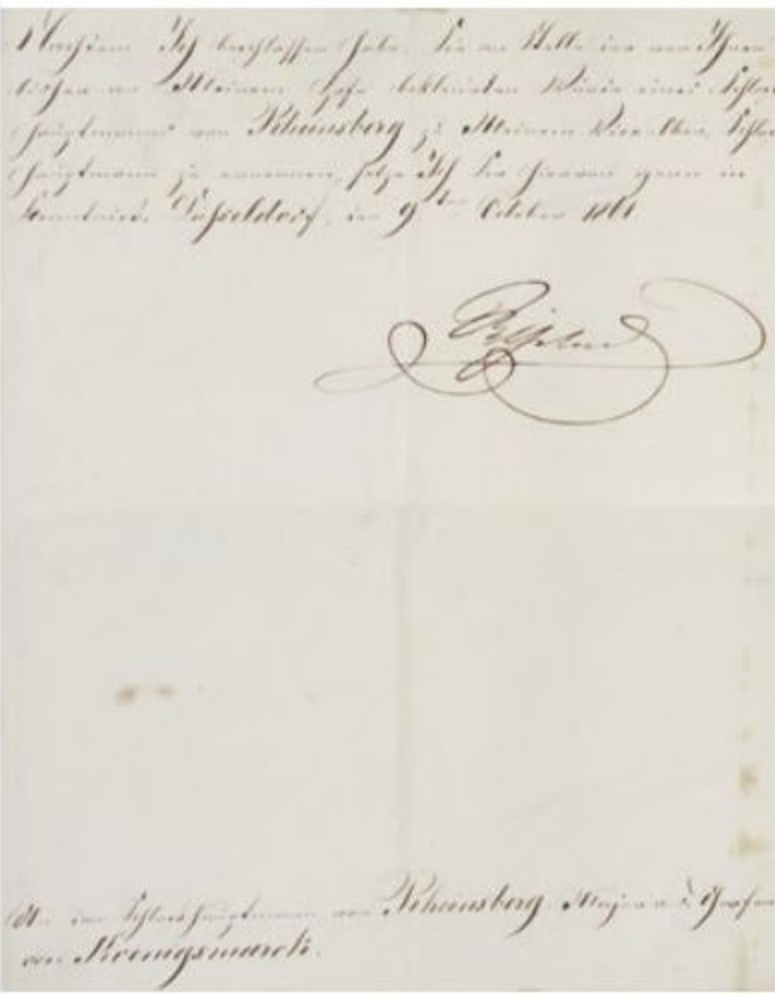 Nachdem Ich beschlossen habe, Sie an Stelle der von Ihnen
bisher an Meinem Hofe bekleideten Würde eines Schloß
hauptmanns von Rheinsberg zu Meinem Schloß
hauptmann zu ernennen, setze Ich Sie hiervon gern in
Kenntniß. Düsseldorf, den 9ten October 1861.
Wilhelm
An den Schloßhauptmann von Rheinsberg, Major a. D. Grafen
von Koenigsmarck.